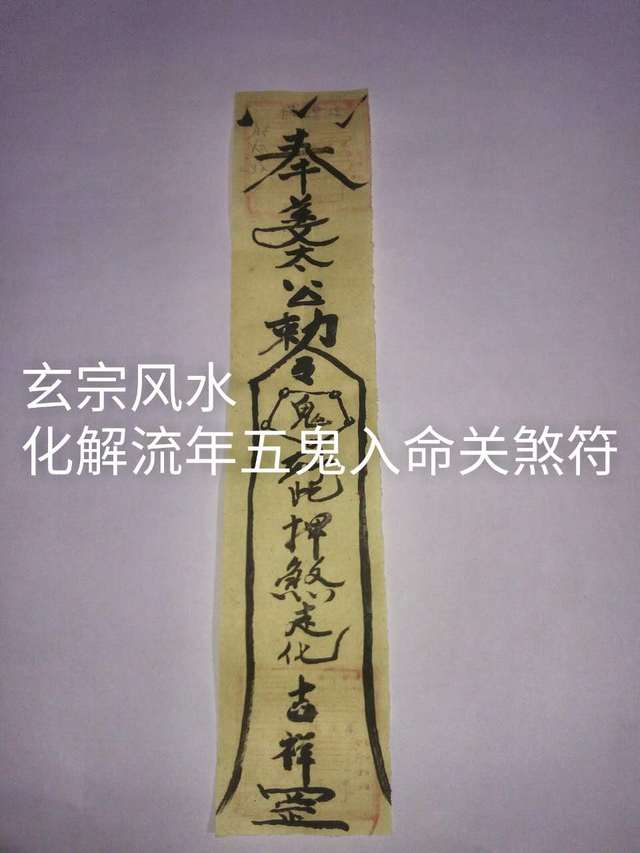 奉姜太公勅令
鬼
押煞走化吉祥罡
玄宗风水
化解流年五鬼入命关煞符